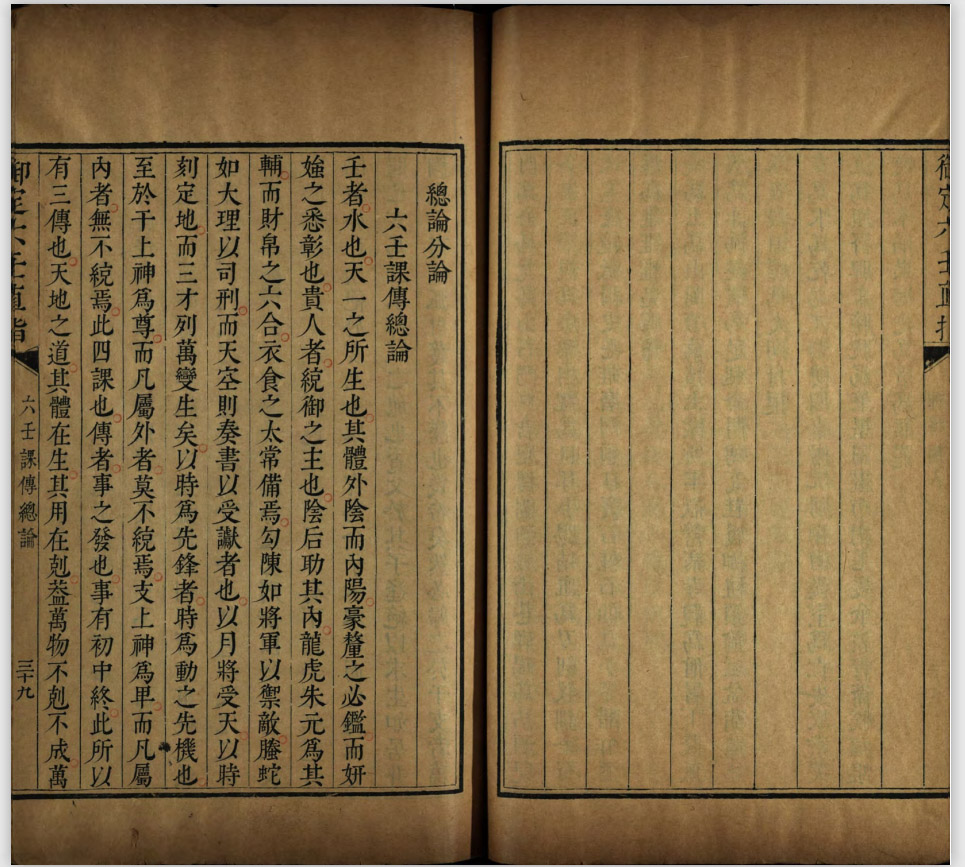 御定六壬直指
總論分論
六壬課傳總論
壬者水也天一之所生也其體外陰而內陽豪釐之必鑑而妍
媸之悉彰也貴人者統御之主也陰后助其內龍虎朱元爲其
輔而財帛之六合衣食之太常備焉勾陳如將軍以禦敵螣蛇
如大理以司刑而天空則奏書以受讞者也以月將受天以時
刻定地而三才列萬變生矣以時爲先鋒者時爲動之先機也
至於干上神爲尊而凡屬外者莫不統焉支上神爲卑而凡屬
內者無不統焉此四課也傳者事之發也事有初中終此所以
有三傳也天地之道其體在生其用在剋葢萬物不剋不成萬
御定六壬直指
六壬課傳總論
三十九